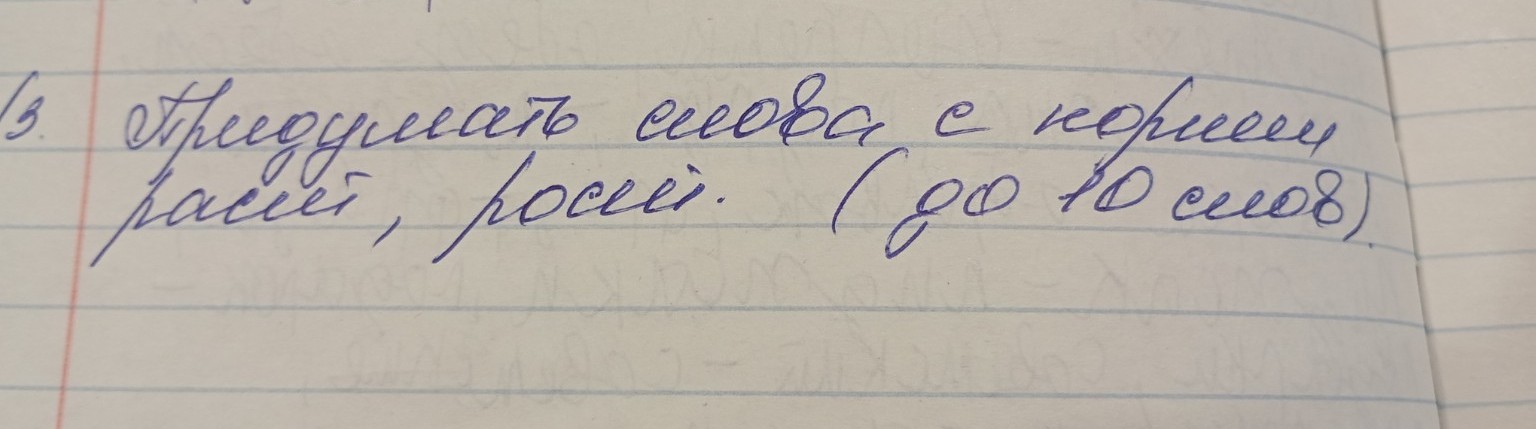 3. Придумать слова с корнем
раст, рост. (до 10 слов).